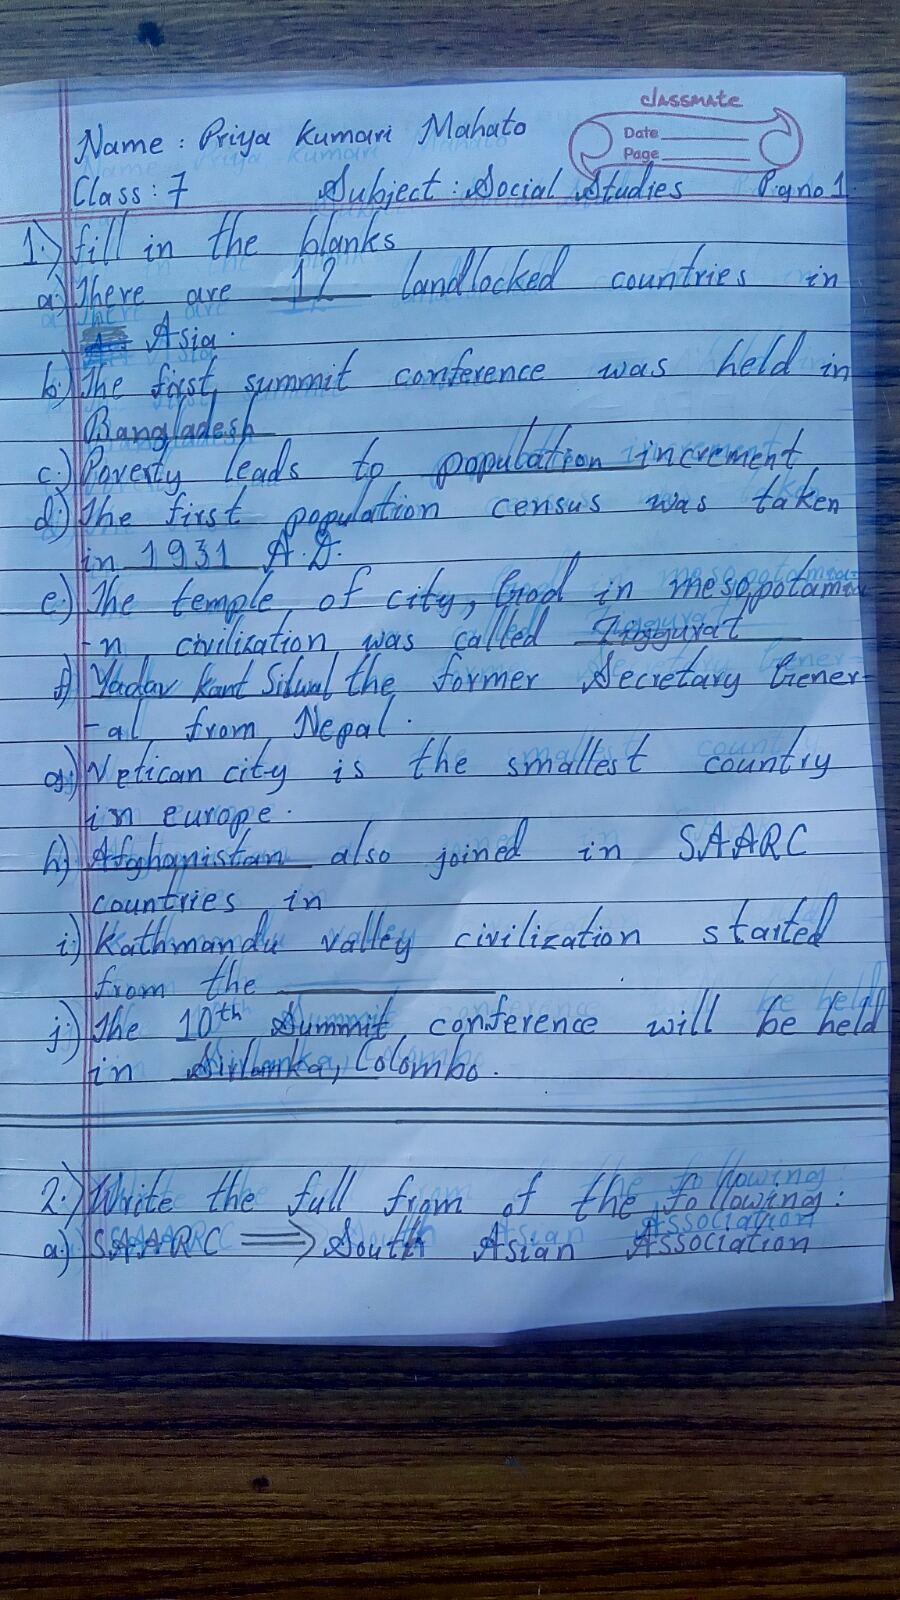 classmate
Date
Page
Name : Priya Kumari Mahato
Class : 7 Subject : Social Studies Pg no 1.
1.) fill in the blanks
a.) There are 12 landlocked countries in
Asia.
b.) The first summit conference was held in
Bangladesh
c.) Poverty leads to population increment
d.) The first population census was taken
in 1931 A.D.
e.) The temple of city, God in mesopotamia
-n civilization was called
f.) Yadav Kant Silwal the former Secretary Gener-
-al from Nepal.
g.) Vetican city is the smallest country
in europe.
h.) Afghanistan also joined in SAARC
countries in
i.) Kathmandu valley civilization started
from the
j.) The 10th Summit conference will be held
in Sirlanka, Colombo.
2.) Write the full from of the following :
a.) SAARC ⟹ South Asian Association